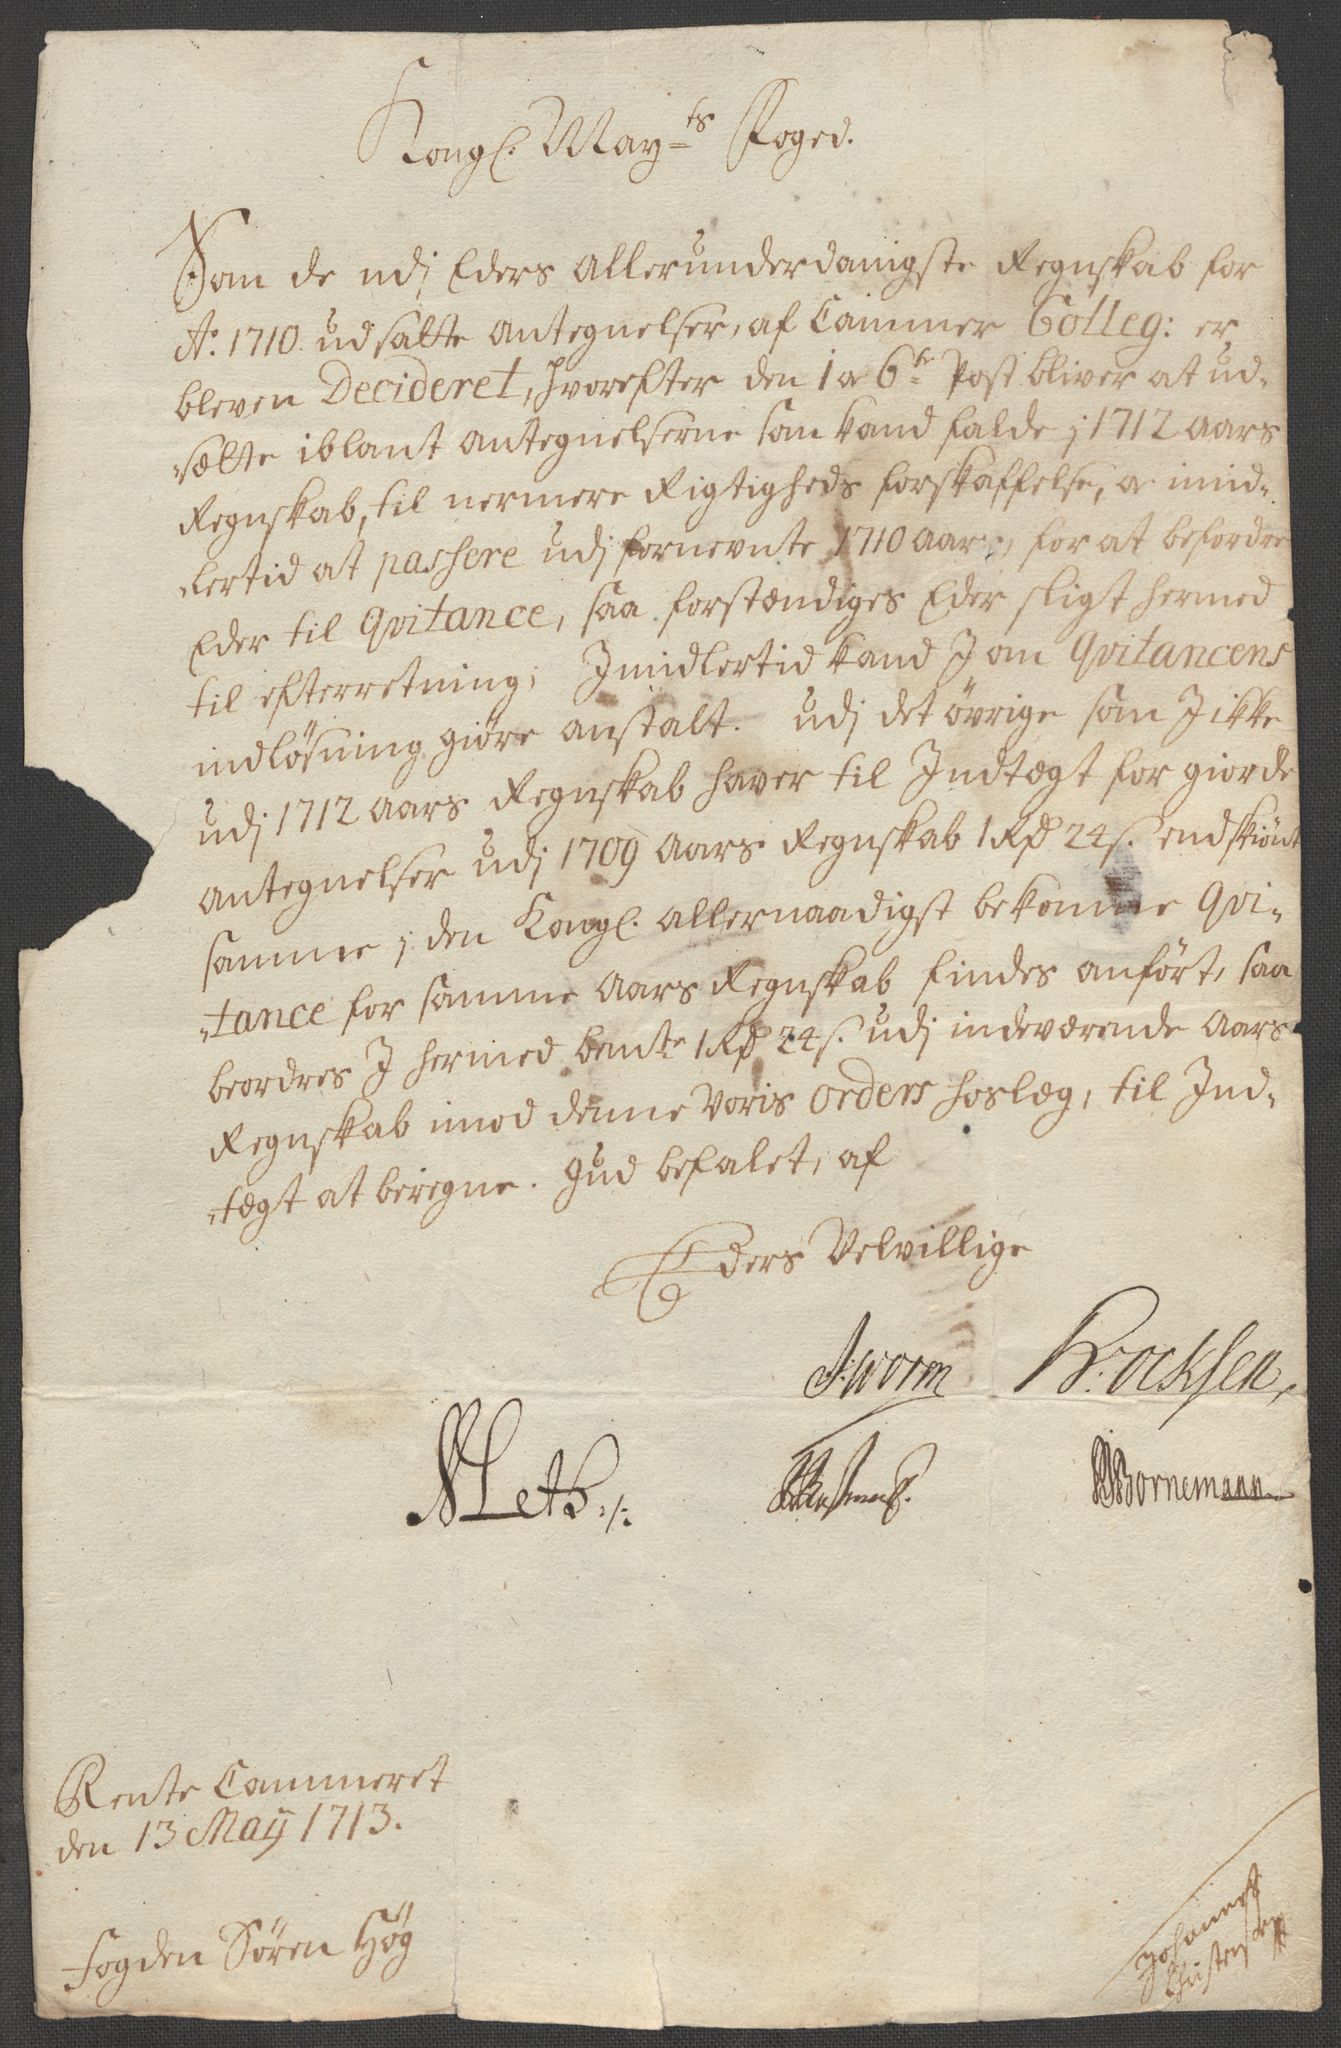 Kongl. May=ts Foged.
Som de udj Eders Allerunderdanigste Regnskab for
Ao. 1710 udsatte Antegnelser, af Cammer Colleg: er
bleven Decideret, hvorefter den 1 a 6te Post bliver at ud-
sætte iblant Antegnelserne som kand falde j 1712 Aars
Regnskab, til nermere Rigtigheds forskaffelse, a imid-
lertid at passere udj fornevnte 1710 Aar, for at befordre
Eder til Qvitance, saa forstændiges Eder sligt hermed
til efterretning; Jmidlertid kand J om Qvitancens
indløsning giøre anstalt. Udj det øvrige som J ikke
udj 1712 Aars Regnskab haver til Jndtegt for giorde
Antegnelser udj 1709 Aars Regnskab 1 Rd 24 s. endskiønt
samme j den Kongl. allernaadigst bekomne Qvi-
tance for samme Aars Regnskab findes anført, saa
beordres J hermed bemte 1 Rd 24 s. udj indeværende Aars
Regnskab imod denne Voris Orders hoslæg, til Jnd-
tægt at beregne. Gud befalet, af
Eders Velvillige
J: Worm
Bornemann
Rente Cammeret
den 13 Maij 1713.
Fogden Søren Høg
Johannes
Christensen